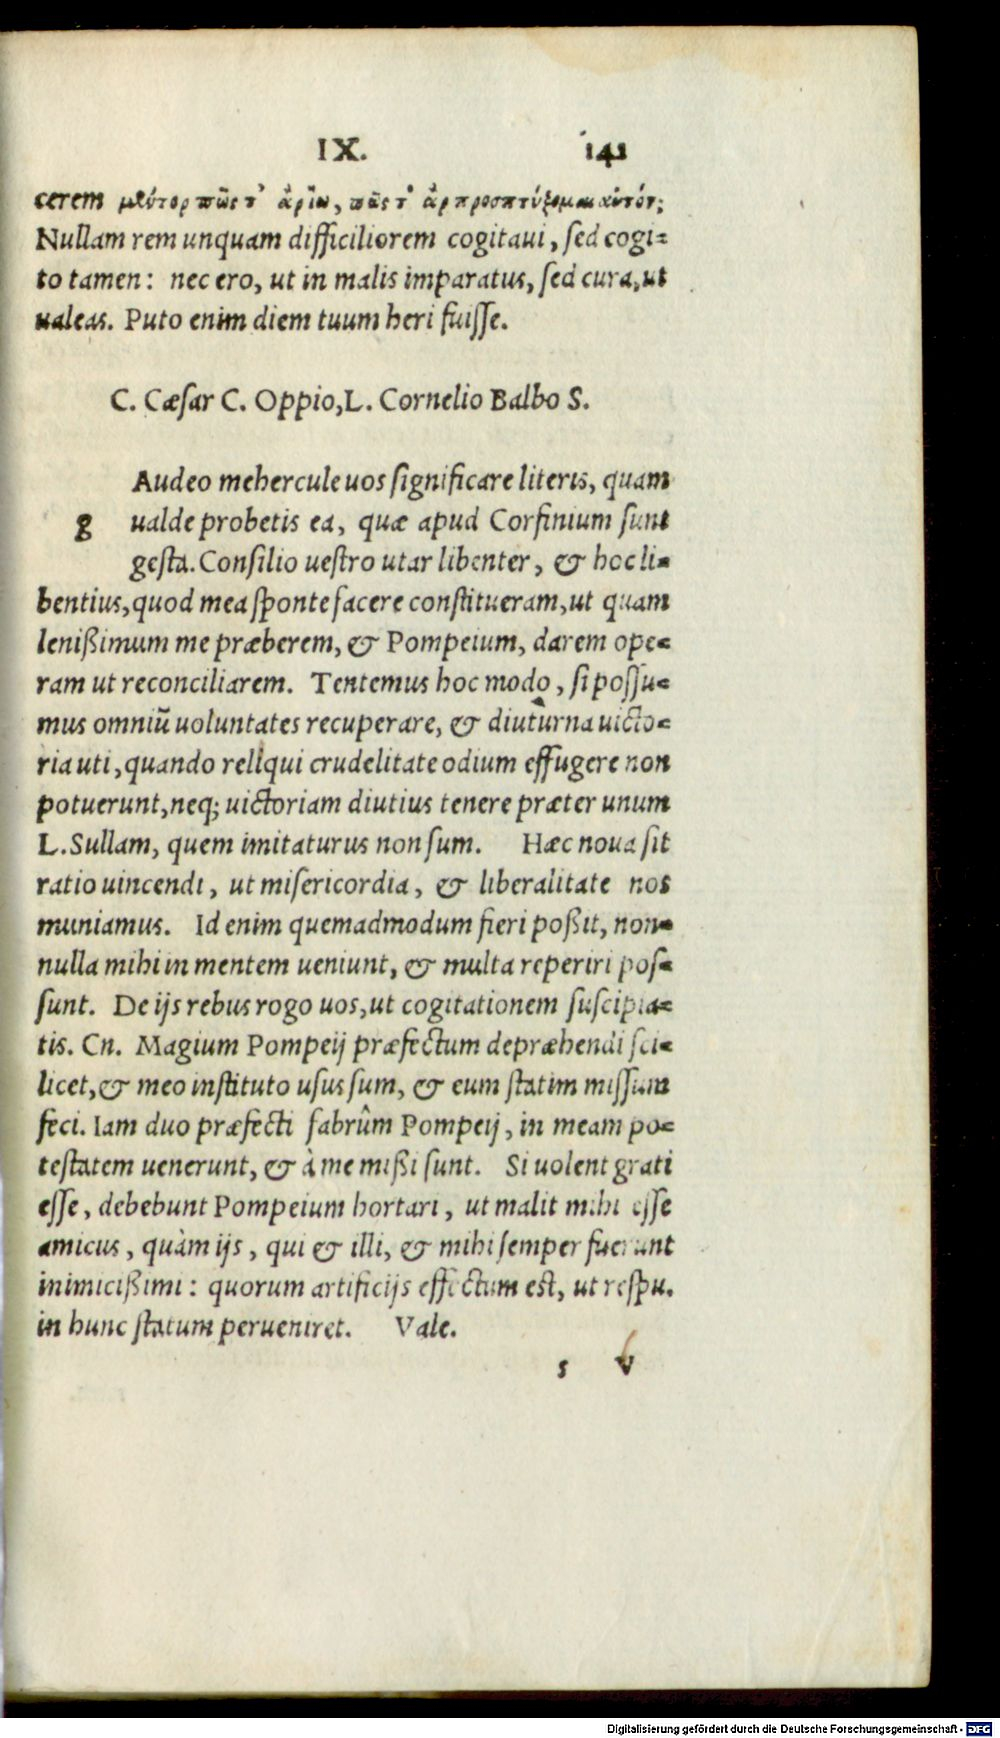 IX. 141
cerem μέντορ πῶς τ' ἂρ ἴω, πῶς τ' ἂρ προσπτύξομαι αὐτόν;
Nullam rem unquam difficiliorem cogitaui, sed cogi-
to tamen: nec ero, ut in malis imparatus, sed cura, ut
ualeas. Puto enim diem tuum heri fuisse.
C. Cæsar C. Oppio, L. Cornelio Balbo S.
Audeo mehercule uos significare literis, quam
g ualde probetis ea, quæ apud Corfinium sunt
gesta. Consilio uestro utar libenter, & hoc li-
bentius, quod mea sponte facere constitueram, ut quam
lenißimum me præberem, & Pompeium, darem ope-
ram ut reconciliarem. Tentemus hoc modo, si possu-
mus omniū uoluntates recuperare, & diuturna uicto-
ria uti, quando reliqui crudelitate odium effugere non
potuerunt, neq; uictoriam diutius tenere præter unum
L. Sullam, quem imitaturus non sum. Hæc noua sit
ratio uincendi, ut misericordia, & liberalitate nos
muniamus. Id enim quemadmodum fieri poßit, non-
nulla mihi in mentem ueniunt, & multa reperiri pos-
sunt. De ijs rebus rogo uos, ut cogitationem suscipia-
tis. Cn. Magium Pompeij præfectum depræhendi sci-
licet, & meo instituto usus sum, & eum statim missum
feci. Iam duo præfecti fabrûm Pompeij, in meam po-
testatem uenerunt, & à me mißi sunt. Si uolent grati
esse, debebunt Pompeium hortari, ut malit mihi esse
amicus, quàm ijs, qui & illi, & mihi semper fuerunt
inimicißimi: quorum artificijs effectum est, ut respu.
in hunc statum perueniret. Vale.
s v
Digitalisierung gefördert durch die Deutsche Forschungsgemeinschaft - DFG